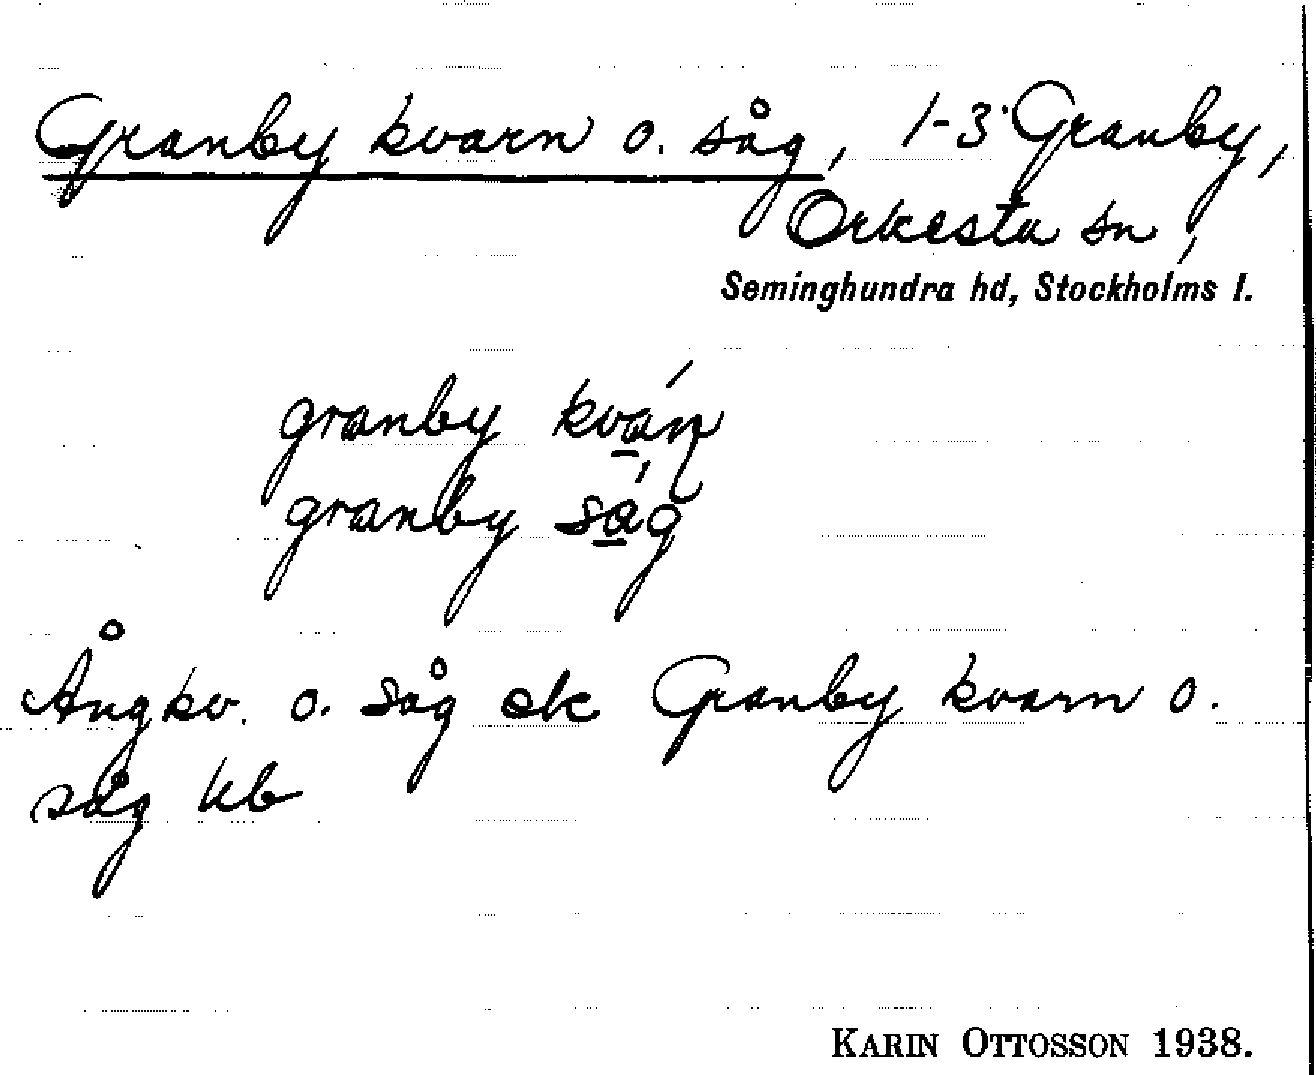 Granby kvarn o. såg, 1-3 Granby,
Orkesta sn,
Seminghundra hd, Stockholms l.
granby kva̲´ɳ
granby sa̲´g
Ångkv. o. såg ek Granby kvarn o.
såg kb
KARIN OTTOSSON 1938.